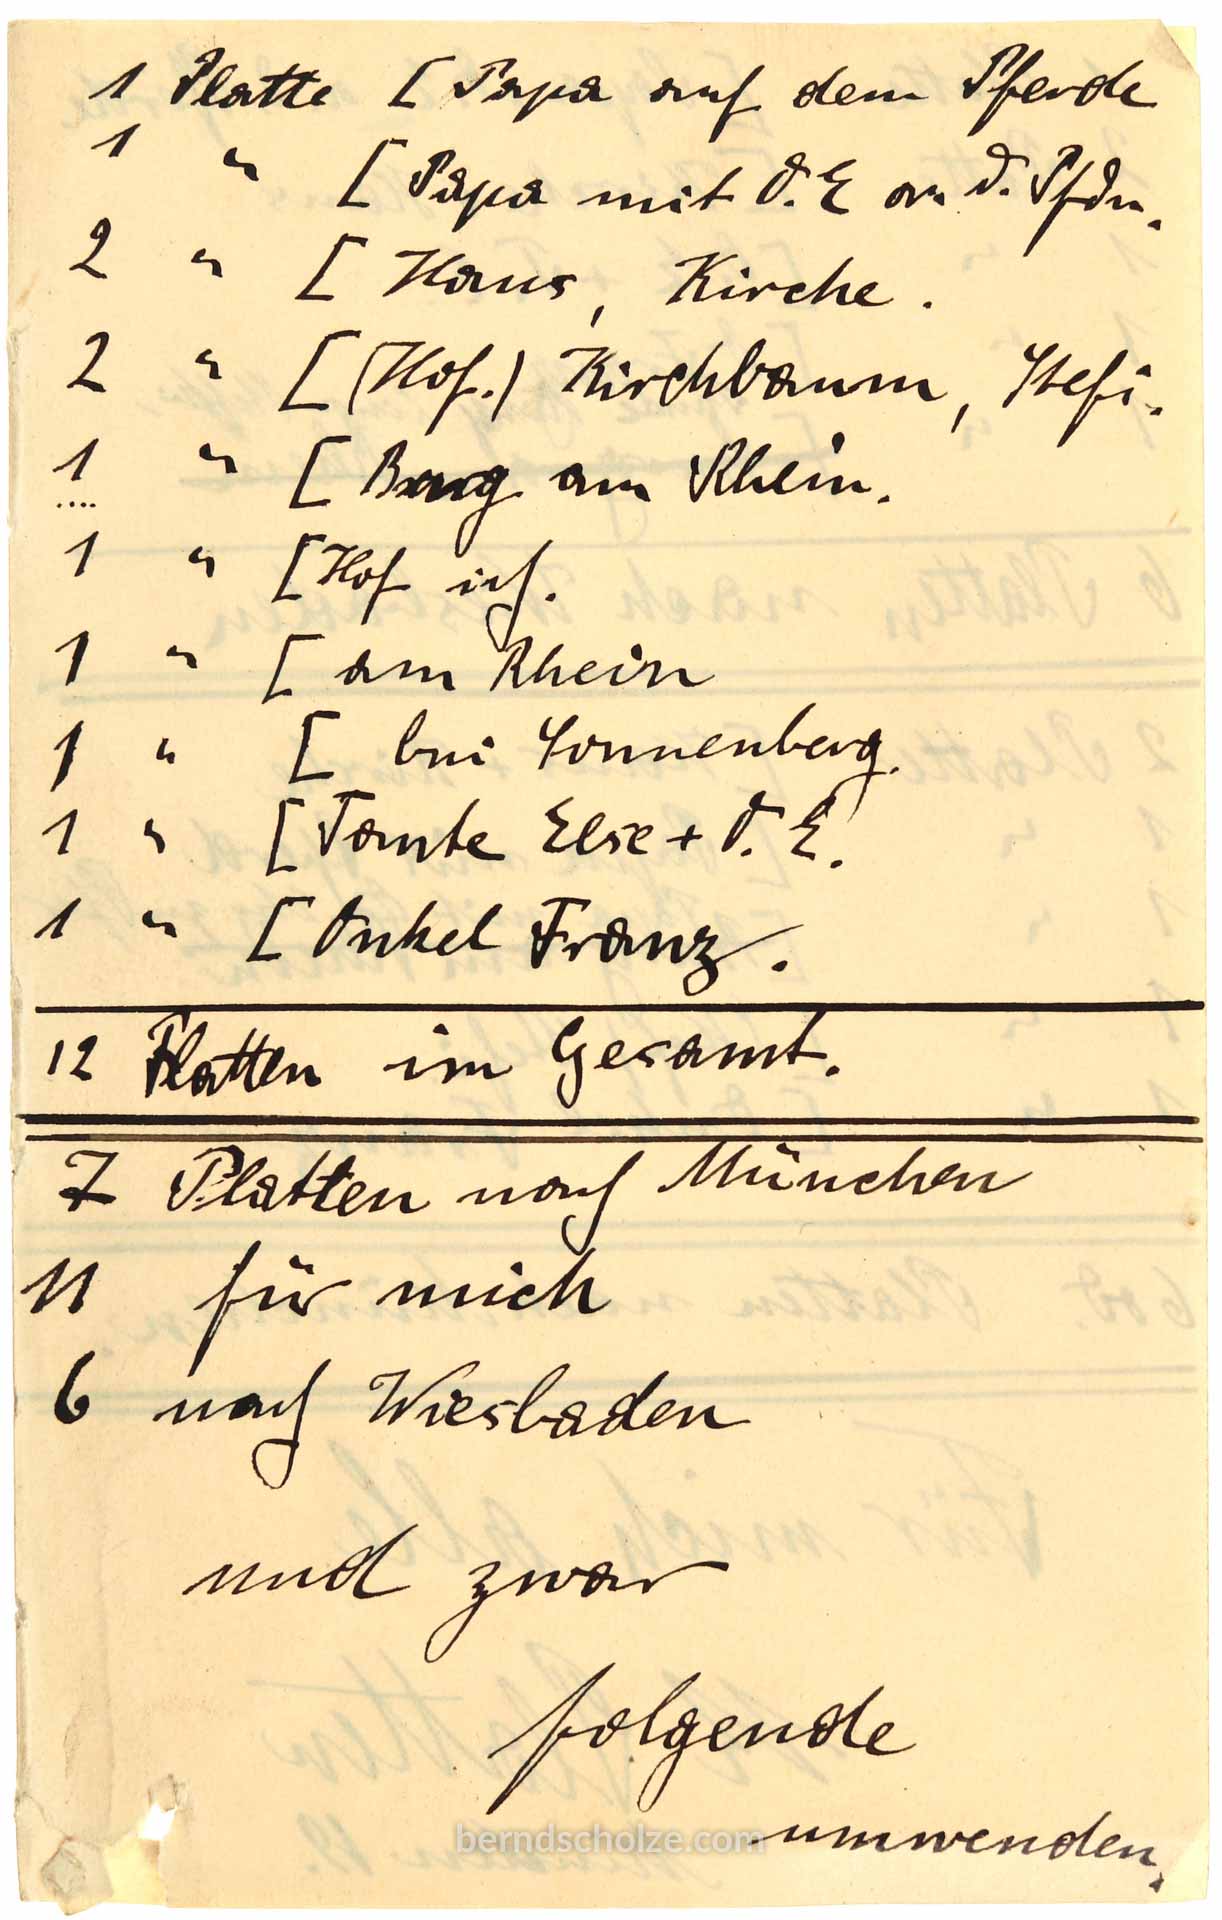 1 Platte [ Papa auf dem Pferde
1 " [ Papa mit O. E an d. Pfdn.
2 " [ Haus, Kirche.
2 " [ (Hof.) Kirchbaum, Stefi.
1 " [ Burg am Rhein.
1 " [ Hof ich.
1 " [ am Rhein
1 " [ bei Sonnenberg.
1 " [ Tante Else + O. E.
1 " [ Onkel Franz.
12 Platten im Gesamt.
7 Platten nach München
11 für mich
6 nach Wiesbaden
und zwar
folgende
umwenden.
berndscholze.com